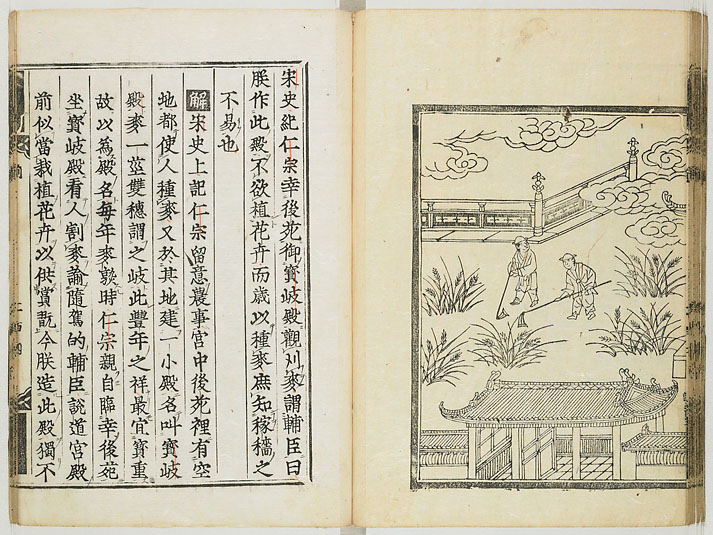 宋史紀仁宗幸後苑御寶岐殿觀刈麥謂輔臣曰
朕作此殿不欲植花卉而歲以種麥庶知稼穡之
不易也
解宋史上記仁宗留意農事宮中後苑裡有空
地都使人種麥又於其地建一小殿名叫寶岐
殿麥一莖雙穗謂之岐此豐年之祥最宜寶重
故以為殿名每年麥熟時仁宗親自臨幸後苑
坐寶岐殿看人割麥諭隨駕的輔臣說道宮殿
前似當栽植花卉以供賞翫今朕造此殿獨不